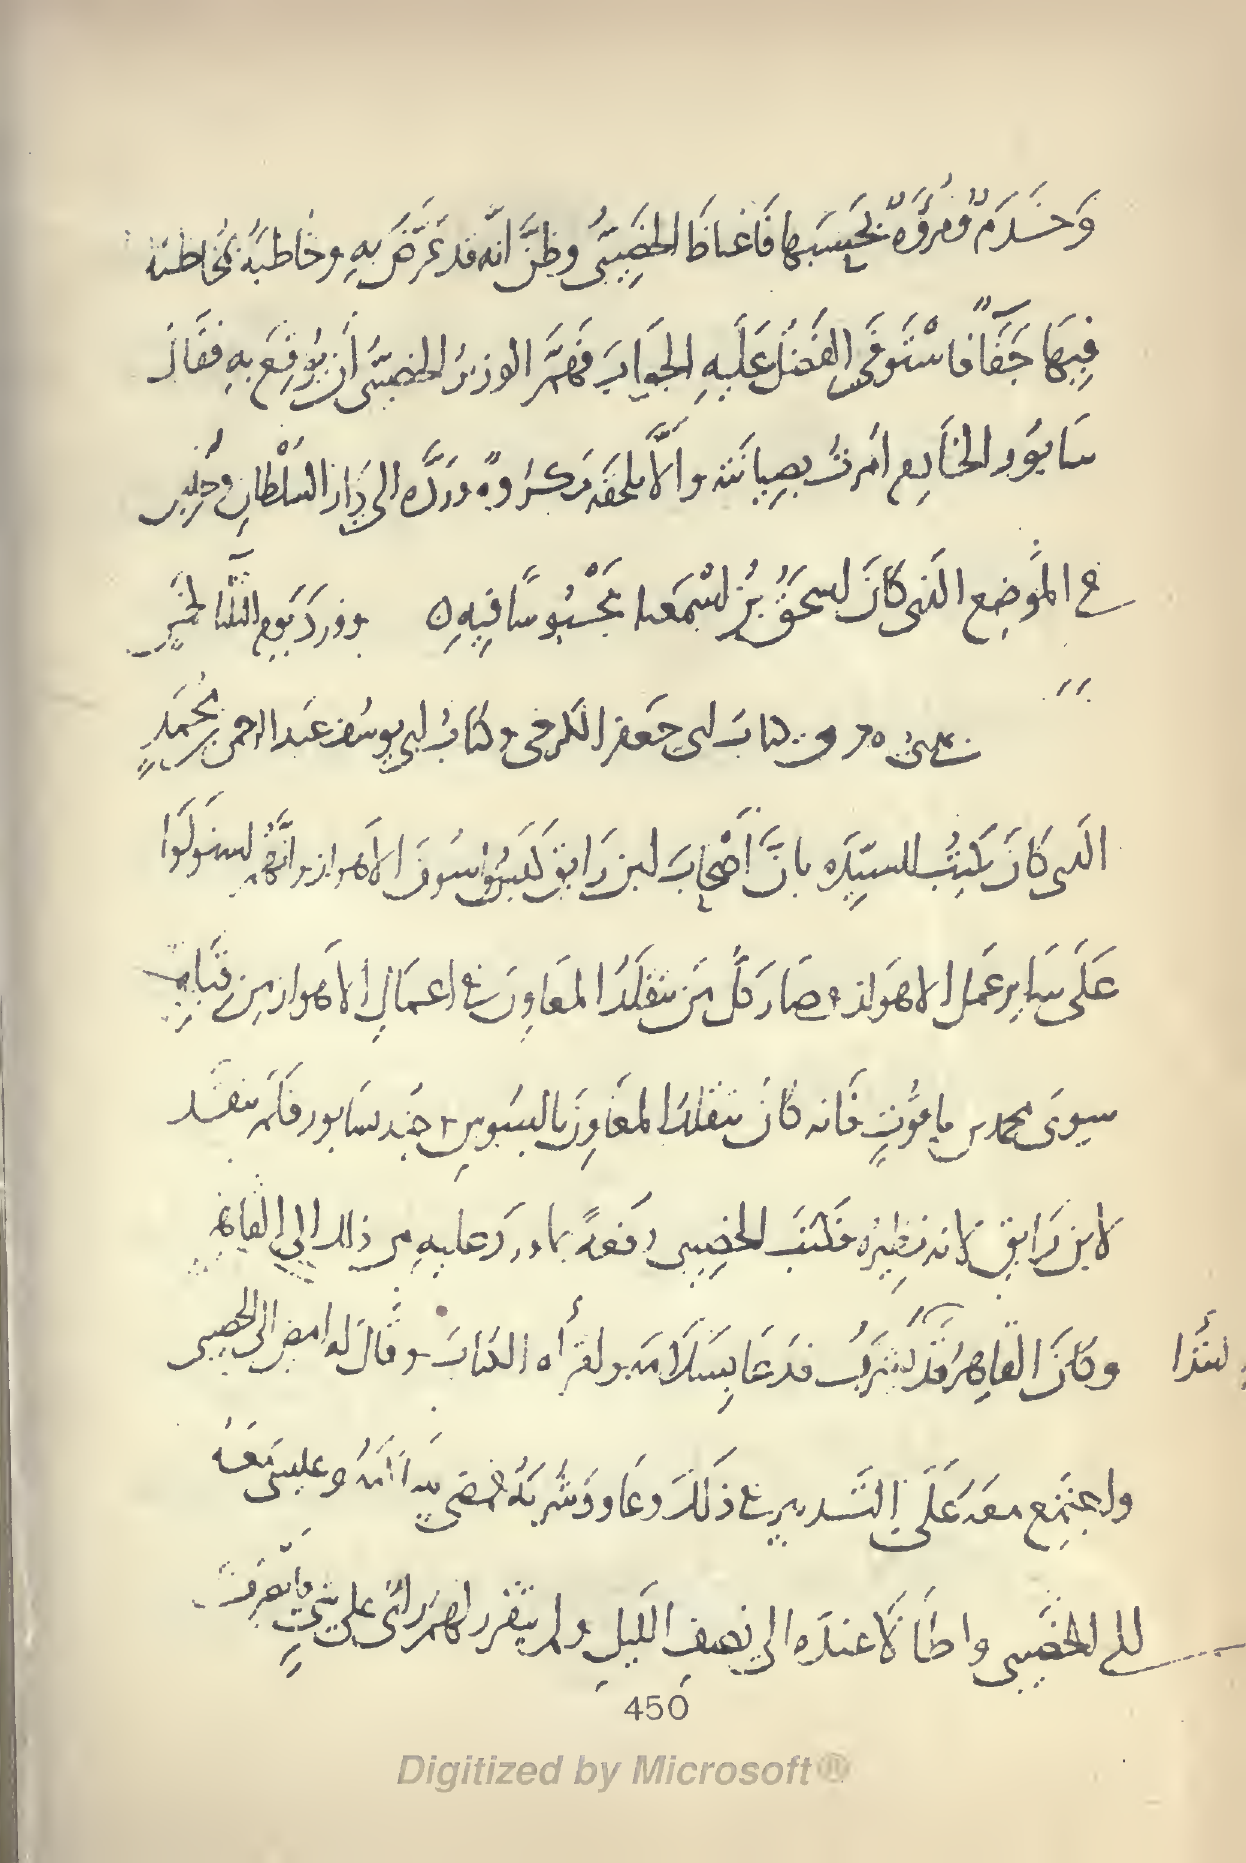 وَخَدَمٌ ومُرُوَّةٌ بحَسَبها فَاغتاظَ الخَصِيبيُّ وظنَّ انّه قد عَرَّضَ بِهِ وخَاطبَهُ مُخَاطبَة
فِيهَا جَفَآءٌ فاسْتَوفَى الفَضْلُ عَلَيهِ الجَوَابَ فهَمَّ الوَزِيرُ الخصيبيُّ أَن يُوقِعَ بِهِ فقَالَ
سَابُور الخَادِم امَرتُ بصِيانَته والاَّ يلحقَه مَكرُوهٌ ورَدَّه الى دَارِ السُلْطانِ وحُبِسَ
في المَوضِع الَذي كَانَ اسحَقُ بنُ اسْمَعيل مَحْبُوسًا فِيهِ ه وورَدَ يَوم الثلثآء لخَمس
كتابُ ابي جَعفر الكرخي وكتَابُ ابي يوسُف عَبد الرحمن بن مُحَمَّدٍ
الَذي كَانَ يَكتُبُ للسَيّدَه بانَّ أَصْحابَ ابن رَايق كَبَسُوا سُوقَ الاهواز وانَّهُم استَولَوا
عَلَى سَايرِ عَمَل الاهوَاز وصَارَ كلُّ مَن يتقلَّدُ المعَاوِنَ في اعمَالِ الاهواز مِن قِبَلِهِ
سِوَى محمد بن ياقُوتٍ فَانه كانَ يتقلدُ المعَاوِنَ بالسُوسِ وجُندَسَابور فلَم ينفذ
لابن رَايق لانه نظِيرُه فكتبَ الخصِيبي رقعةً بما ورَدَ عليهِ من ذلك الى القَاهِر
وكَانَ القاهِرُ قَد شَرِبَ فدَعَا بسَلامَة واقرأَه الكتابَ وقَالَ له امضِ الى الخصيبي
واجتَمِع معَه عَلَى التَدبيرِ في ذَلكَ وعَاودَ شُربَهُ فمضى سَلامَةُ وعيسَى مَعَهُ
الى الخَصيبي واطَالاَ عندَه الى نِصفِ الليلِ ولم يتقرر لهم رَايٌ على شيءٍ وانصرفَ
450
Digitized by Microsoft®